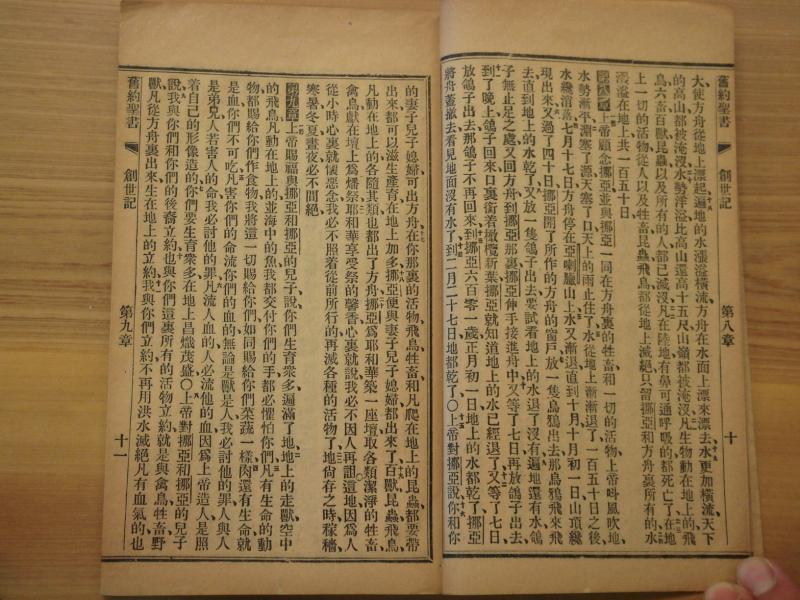 舊約聖書 創世記 第八章 十
大使方舟從地上漂起遍地的水漲溢橫流方舟在水面上漂來漂去水更加橫流天下
的高山都被淹沒水勢洋溢比高山還高十五尺山嶺都被淹沒凡生物動在地上的飛
鳥六畜百獸昆蟲以及所有的人都已滅沒凡在陸地有鼻可通呼吸的都死亡了在地
上一切的活物從人以及牲畜昆蟲飛鳥都從地上滅絕只留挪亞和方舟裏所有的水
漲溢在地上共一百五十日
第八章上帝顧念挪亞並與挪亞一同在方舟裏的牲畜和一切的活物上帝叫風吹地
水勢漸平淵塞了源天塞了口天上的雨止住了水從地上漸漸退了一百五十日之後
水纔消落七月十七日方舟停在亞喇臘山上水又漸退直到十月十月初一日山頂纔
現出來又過了四十日挪亞開了所作的方舟的窗戶放一隻烏鴉出去那烏鴉飛來飛
去直到地上的水乾了又放一隻鴿子出去要試看地上的水退了沒有遍地還有水鴿
子無止足之處又回方舟到挪亞那裏挪亞伸手接進舟中又等了七日再放鴿子出去
到了晚上鴿子回來口裏銜着橄欖新葉挪亞就知道地上的水已經退了又等了七日
放鴿子出去那鴿子不再回來到挪亞六百零一歲正月初一日地上的水都乾了挪亞
將舟蓋撤去看見地面沒有水了到二月二十七日地都乾了〇上帝對挪亞說你和你
的妻子兒子媳婦可出方舟在你那裏的活物飛鳥牲畜和凡爬在地上的昆蟲都要帶
出來都可以滋生產育在地上加多挪亞便與妻子兒子媳婦都出來了百獸昆蟲飛鳥
凡動在地上的各隨其類也都出了方舟挪亞爲耶和華築一座壇取各類潔淨的牲畜
禽鳥獻在壇上爲燔祭耶和華享受祭的馨香心裏就說我必不因人再詛這地因爲人
從小時心裏就懷惡念我必不照着從前所行的再滅各種的活物了地尙存之時稼穡
寒暑冬夏晝夜必不間絕
第九章上帝賜福與挪亞和挪亞的兒子說你們生育衆多遍滿了地地上的走獸空中
的飛鳥凡動在地上的並海中的魚我都交付你們的手都必懼怕你們凡有生命的動
物都賜給你們作食物我將這一切賜給你們如同賜給你們菜蔬一樣肉還有生命就
是血你們不可吃凡害你們的命流你們的血的無論是獸是人我必討他的罪人與人
是弟兄人若害人的命我必討他的罪凡流人血的人必流他的血因爲上帝造人是照
着自己的形像造的你們要生育衆多在地上昌熾茂盛〇上帝對挪亞和挪亞的兒子
說我與你們和你們的後裔立約也與你們這裏所有的活物立約就是與禽鳥牲畜野
獸凡從方舟裏出來生在地上的立約我與你們立約不再用洪水滅絕凡有血氣的也
舊約聖書 創世記 第九章 十一